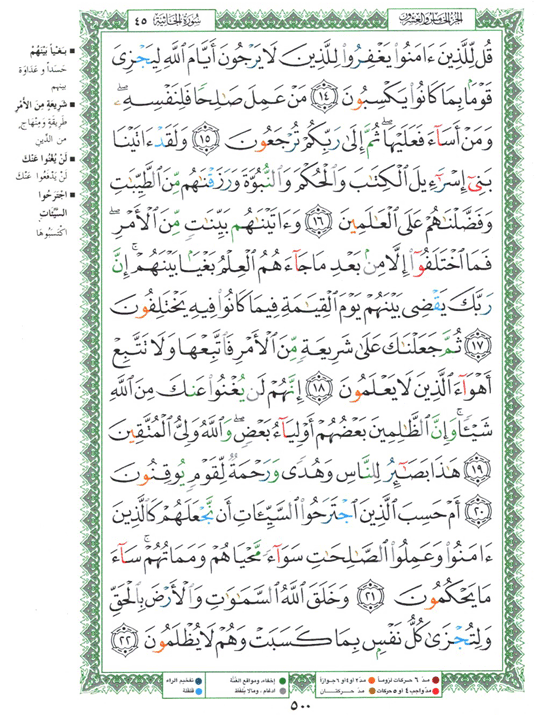 الجزء الخامس والعشرون
سورة الجاثية ٤٥
قُل لِّلَّذِينَ ءَامَنُوا۟ يَغْفِرُوا۟ لِلَّذِينَ لَا يَرْجُونَ أَيَّامَ ٱللَّهِ لِيَجْزِىَ
قَوْمًۢا بِمَا كَانُوا۟ يَكْسِبُونَ ١٤ مَنْ عَمِلَ صَٰلِحًا فَلِنَفْسِهِۦ ۖ
وَمَنْ أَسَآءَ فَعَلَيْهَا ۖ ثُمَّ إِلَىٰ رَبِّكُمْ تُرْجَعُونَ ١٥ وَلَقَدْ ءَاتَيْنَا
بَنِىٓ إِسْرَٰٓءِيلَ ٱلْكِتَٰبَ وَٱلْحُكْمَ وَٱلنُّبُوَّةَ وَرَزَقْنَٰهُم مِّنَ ٱلطَّيِّبَٰتِ
وَفَضَّلْنَٰهُمْ عَلَى ٱلْعَٰلَمِينَ ١٦ وَءَاتَيْنَٰهُم بَيِّنَٰتٍ مِّنَ ٱلْأَمْرِ ۖ
فَمَا ٱخْتَلَفُوٓا۟ إِلَّا مِنۢ بَعْدِ مَا جَآءَهُمُ ٱلْعِلْمُ بَغْيًۢا بَيْنَهُمْ ۚ إِنَّ
رَبَّكَ يَقْضِى بَيْنَهُمْ يَوْمَ ٱلْقِيَٰمَةِ فِيمَا كَانُوا۟ فِيهِ يَخْتَلِفُونَ
١٧ ثُمَّ جَعَلْنَٰكَ عَلَىٰ شَرِيعَةٍ مِّنَ ٱلْأَمْرِ فَٱتَّبِعْهَا وَلَا تَتَّبِعْ
أَهْوَآءَ ٱلَّذِينَ لَا يَعْلَمُونَ ١٨ إِنَّهُمْ لَن يُغْنُوا۟ عَنكَ مِنَ ٱللَّهِ
شَيْـًٔا ۚ وَإِنَّ ٱلظَّٰلِمِينَ بَعْضُهُمْ أَوْلِيَآءُ بَعْضٍ ۖ وَٱللَّهُ وَلِىُّ ٱلْمُتَّقِينَ
١٩ هَٰذَا بَصَٰٓئِرُ لِلنَّاسِ وَهُدًى وَرَحْمَةٌ لِّقَوْمٍ يُوقِنُونَ
٢٠ أَمْ حَسِبَ ٱلَّذِينَ ٱجْتَرَحُوا۟ ٱلسَّيِّـَٔاتِ أَن نَّجْعَلَهُمْ كَٱلَّذِينَ
ءَامَنُوا۟ وَعَمِلُوا۟ ٱلصَّٰلِحَٰتِ سَوَآءً مَّحْيَاهُمْ وَمَمَاتُهُمْ ۚ سَآءَ
مَا يَحْكُمُونَ ٢١ وَخَلَقَ ٱللَّهُ ٱلسَّمَٰوَٰتِ وَٱلْأَرْضَ بِٱلْحَقِّ
وَلِتُجْزَىٰ كُلُّ نَفْسٍۭ بِمَا كَسَبَتْ وَهُمْ لَا يُظْلَمُونَ ٢٢
بَغْياً بَيْنَهُمْ
حَسَداً وَعَدَاوَةً
بينهم
شَرِيعَةٍ مِنَ الأَمْرِ
طَرِيقَةٍ وَمِنْهَاجٍ
مِنَ الدِّينِ
لَنْ يُغْنُوا عَنكَ
لَنْ يَدْفَعُوا عَنْكَ
اجْتَرَحُوا
السَّيِّئَاتِ
اكْتَسَبُوهَا
مدّ ٦ حركات لزوماً مدّ ٢ أو ٤ أو ٦ جوازاً
مدّ واجب ٤ أو ٥ حركات مدّ حركتان
إخفاء، ومواقع الغُنَّة
ادغام، وما لا يُلفظ
تفخيم الراء
قلقلة
٥٠٠